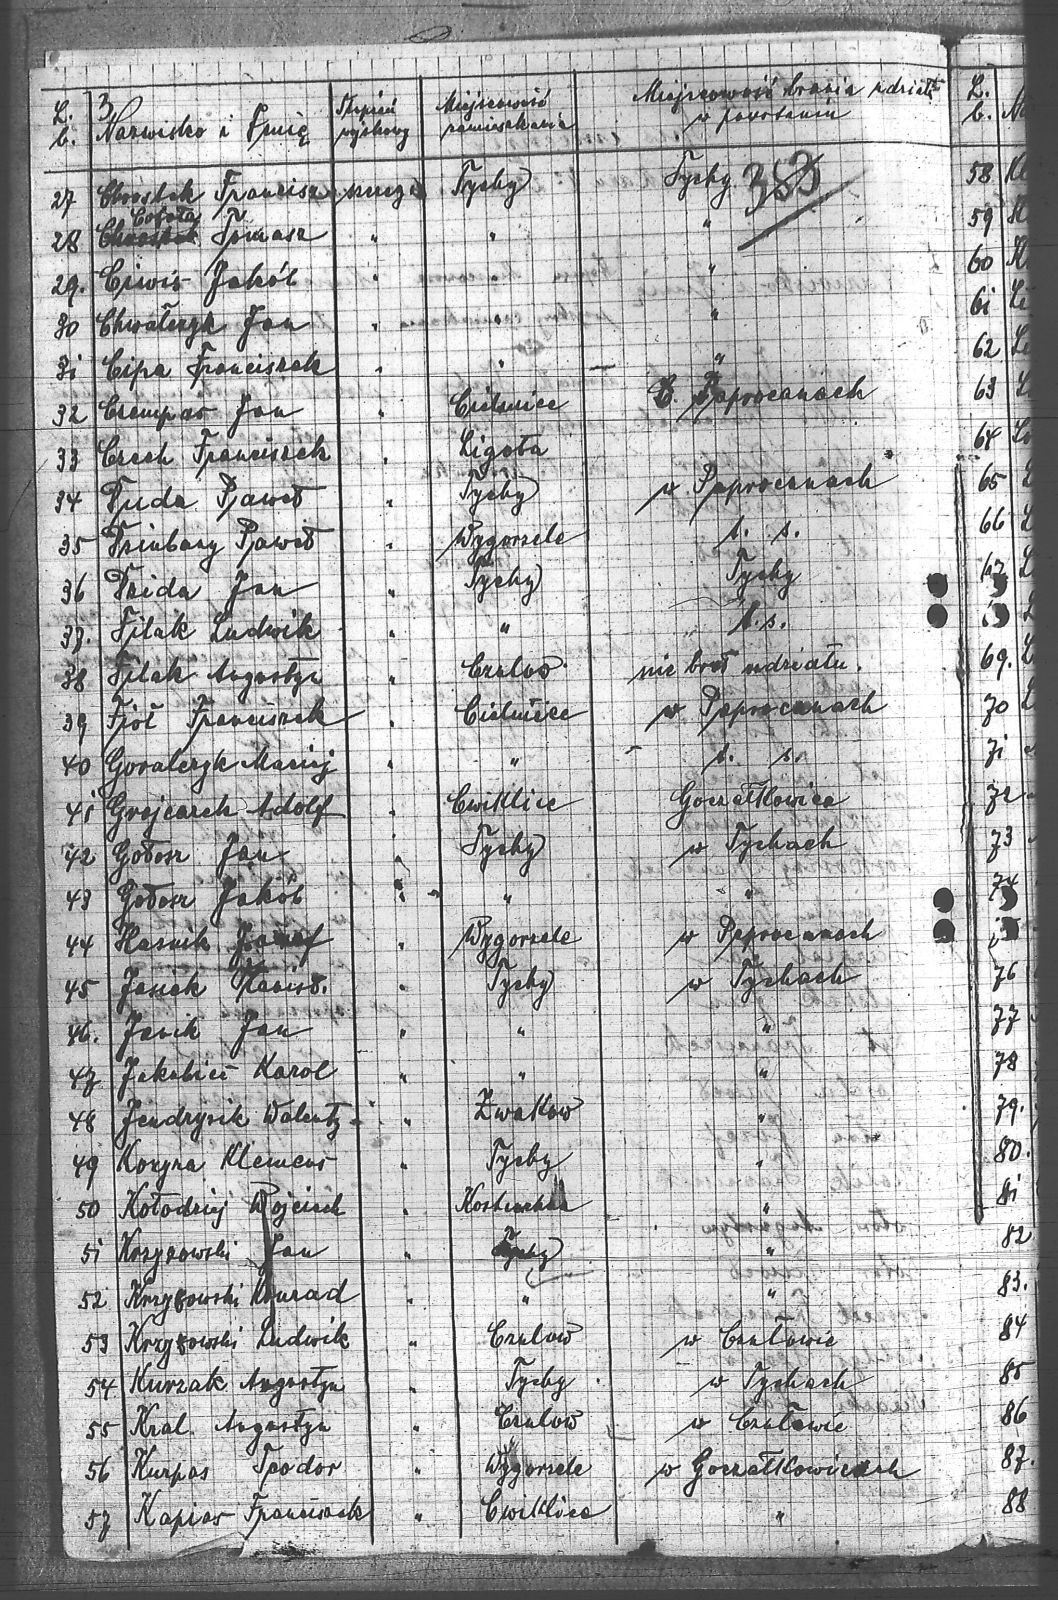 L. b. Nazwisko i Imię Stopień wyskowy Miejscowość zamieszkania Miejscowość brania udziału w powstaniu L. b.
3
383
27 Chrostek Francisz. szereg. Tychy Tychy 58
Cofała
28 Tomasz " " " 59
29. Jakób " " 60
30 Chwalczyk Jan " " " 61
31 Cipa Franciszek " " " 62
32 Czempas Jan " Cielmice Paprocanach 63
33 Czech Franciszek " Ligota 64
34 Duda Paweł " Tychy w Paprocanach 65
35 Paweł " Wygorzele t. s. 66
36 Jan " Tychy Tychy 67
37. Filak Ludwik " " t. s.
38 Filak Augustyn " Czulow nie brał udziału. 69.
39 Fjoł Franciszek " Cielmice w Paprocanach 70
40 Goralczyk Maciej " " t. s. 71
41 Grojcarek Adolf " Cwiklice Goczałkowice 72
42 Gołosz Jan " Tychy w Tychach 73
43 Gołosz Jakób " " " 74
44 Hasnik Józef " Wygorzele w Paprocanach
45 Jasick " Tychy w Tychach 76
46. Jarik Jan " " " 77
47 Jakubiec Karol " " " 78
48 Jendrysik Walenty " Zwakow " 79.
49 Kozyra Klemens " Tychy " 80.
50 Kołodziej Wojciech " Kostuchna " 81
51 Krzyżowski Jan " Tychy " 82
52 Krzyżowski Konrad " " " 83.
53 Krzyżowski Ludwik " Czulow w Czułowie 84
54 Kurzak Augustyn " Tychy w Tychach 85
55 Kral Augustyn " Czulow w Czułowie 86
56 Kurpas Teodor " Wygorzele w Goczałkowicach 87.
57 Kapias Franciszek " Cwiklice " 88